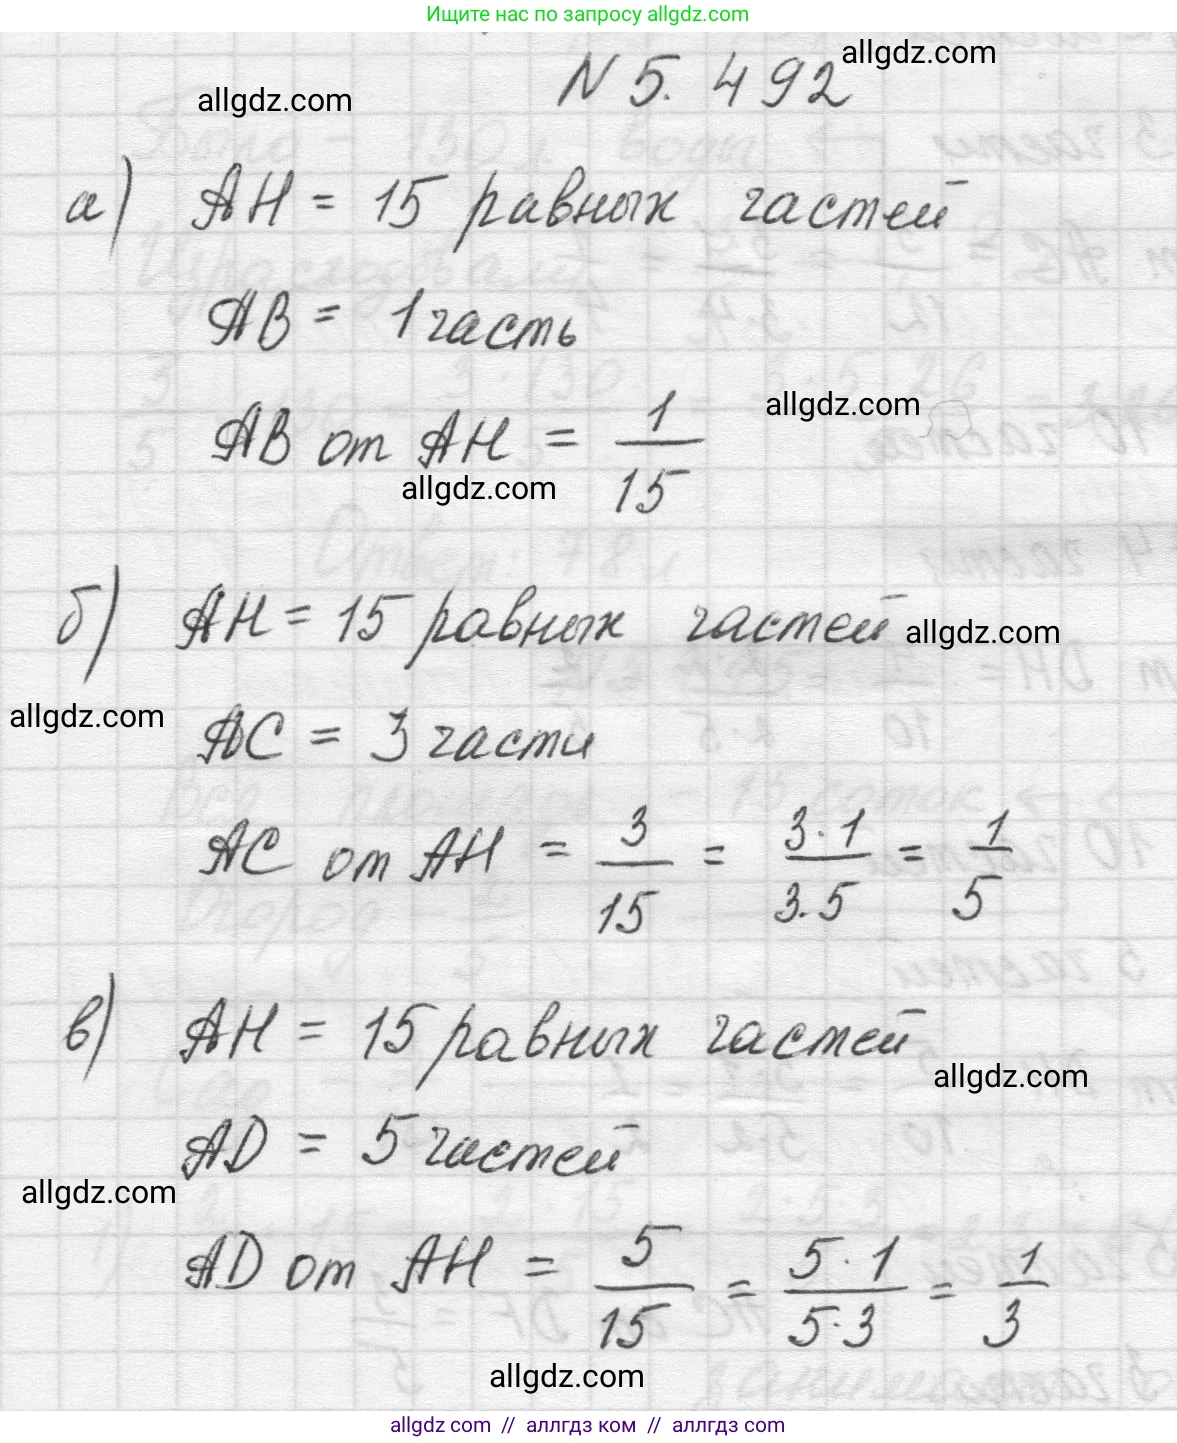 Ищите нас по запросу allgdz.com
N 5. 492
allgdz.com
allgdz.com
а) AH = 15 равных частей
AB = 1 часть
allgdz.com
AB от AH = 1/15
allgdz.com
б) AH = 15 равных частей
allgdz.com
allgdz.com
AC = 3 части
AC от AH = 3/15 = 3·1/3·5 = 1/5
в) AH = 15 равных частей
allgdz.com
AD = 5 частей
allgdz.com
AD от AH = 5/15 = 5·1/5·3 = 1/3
allgdz.com
allgdz.com // аллгдз ком // аллгдз.com